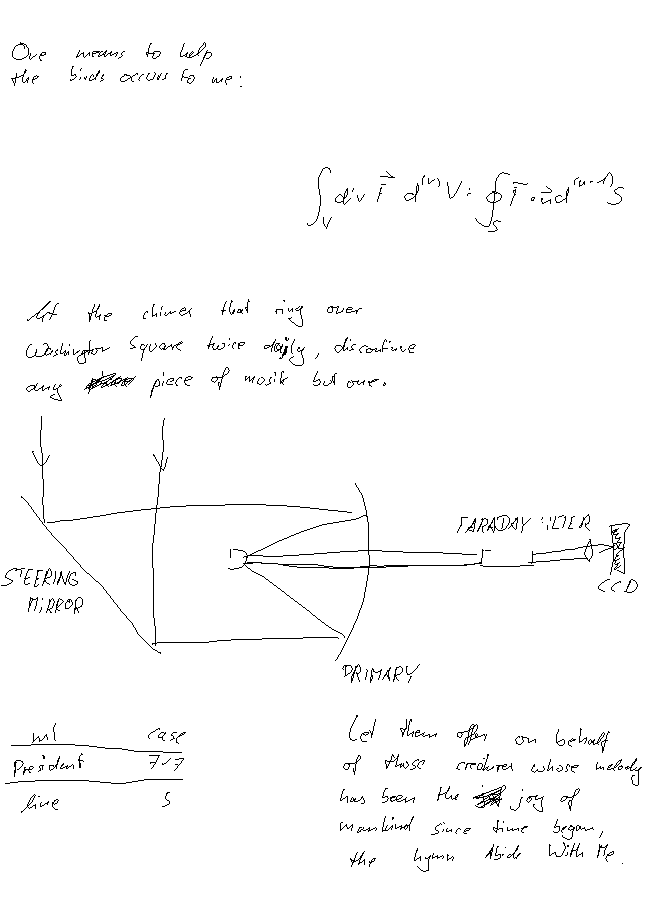 One means to help
the birds occurs to me:
∫_V div F⃗ d^(n) V = ∮_S F⃗ · n⃗ d^(n-1) S
let the chimes that ring over
Washington Square twice daily, discontinue
any piece of music but one.
FARADAY FILTER
CCD
STEERING
MIRROR
PRIMARY
ml case
President 7-7
line 5
Let them offer on behalf
of those creatures whose melody
has been the joy of
mankind since time began,
the hymn Abide With Me.